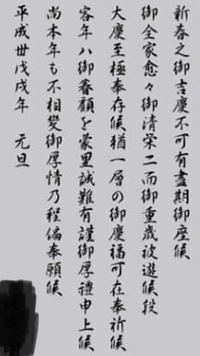 新春之御吉慶不可有盡期御座候
御全家愈々御清栄ニ而御重歳被遊候段
大慶至極奉存候猶一層の御慶福可在奉祈候
客年ハ御眷顧を蒙里誠難有謹御厚禮申上候
尚本年も不相變御厚情乃程偏奉願候
平成卅戊戌年 元旦